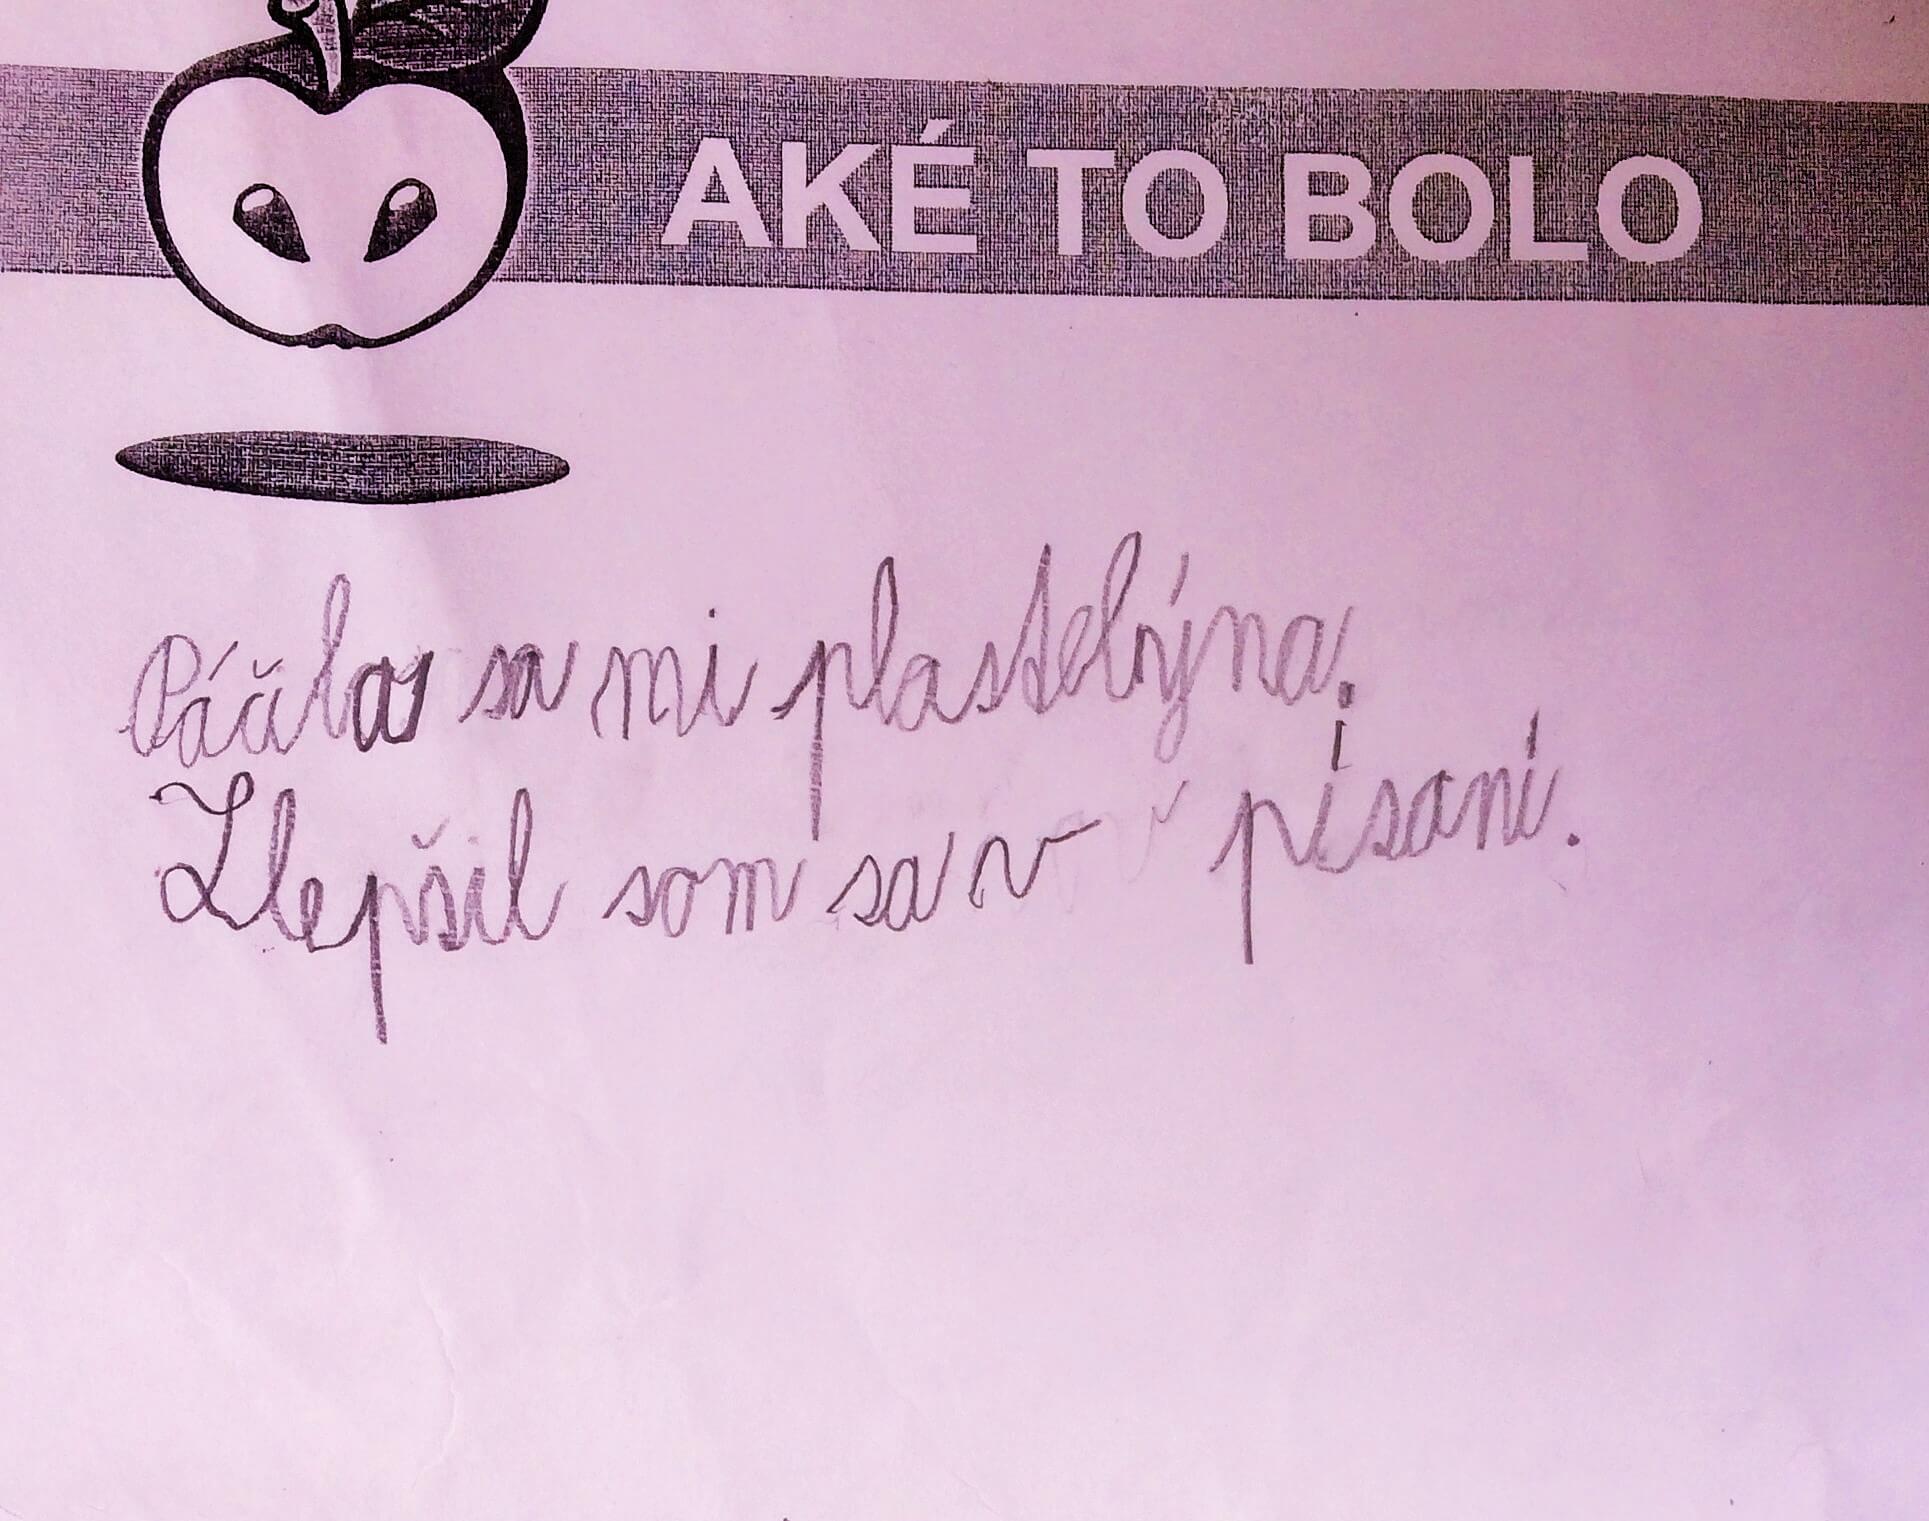 AKÉ TO BOLO
Páčila sa mi plastelýna.
Zlepšil som sa v písaní.